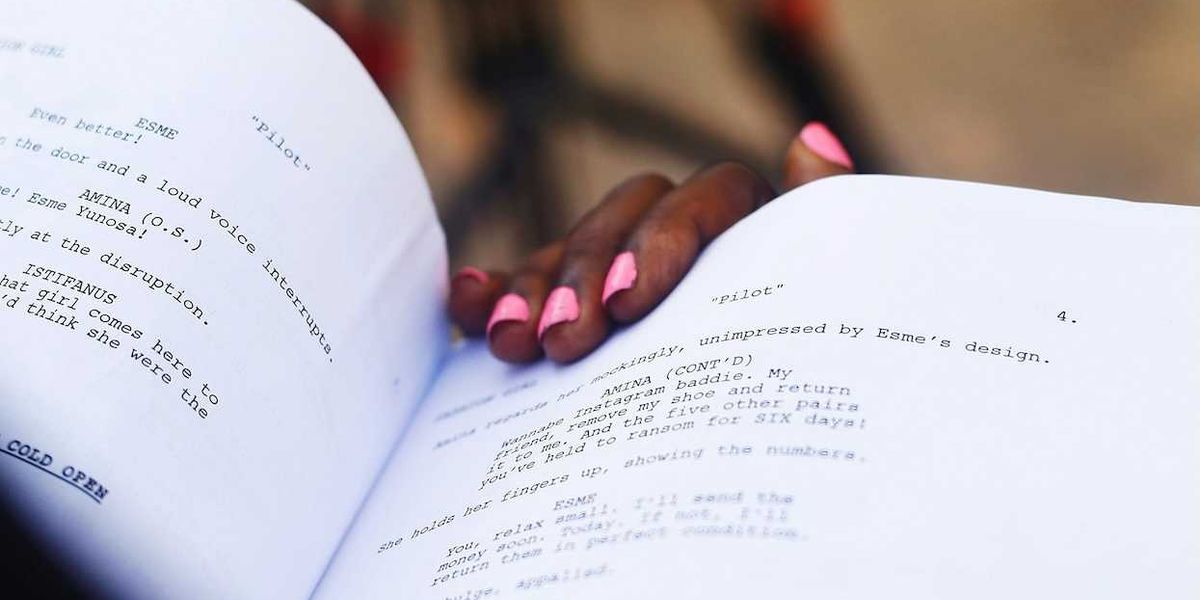 GIRL
"Pilot"
ESME
Even better!
the door and a loud voice interrupts.
AMINA (O.S.)
Esme Yunosa!
at the disruption.
ISTIFANUS
girl comes here to
think she were the
COLD OPEN
"Pilot"
4.
FASHION GIRL
Amina regards her mockingly, unimpressed by Esme's design.
AMINA (CONT'D)
Wannabe Instagram baddie. My
friend, remove my shoe and return
it to me. And the five other pairs
you've held to ransom for SIX days!
She holds her fingers up, showing the numbers.
ESME
You, relax small. I'll send the
money soon. Today. If not, I'll
return them in perfect condition.
appalled.